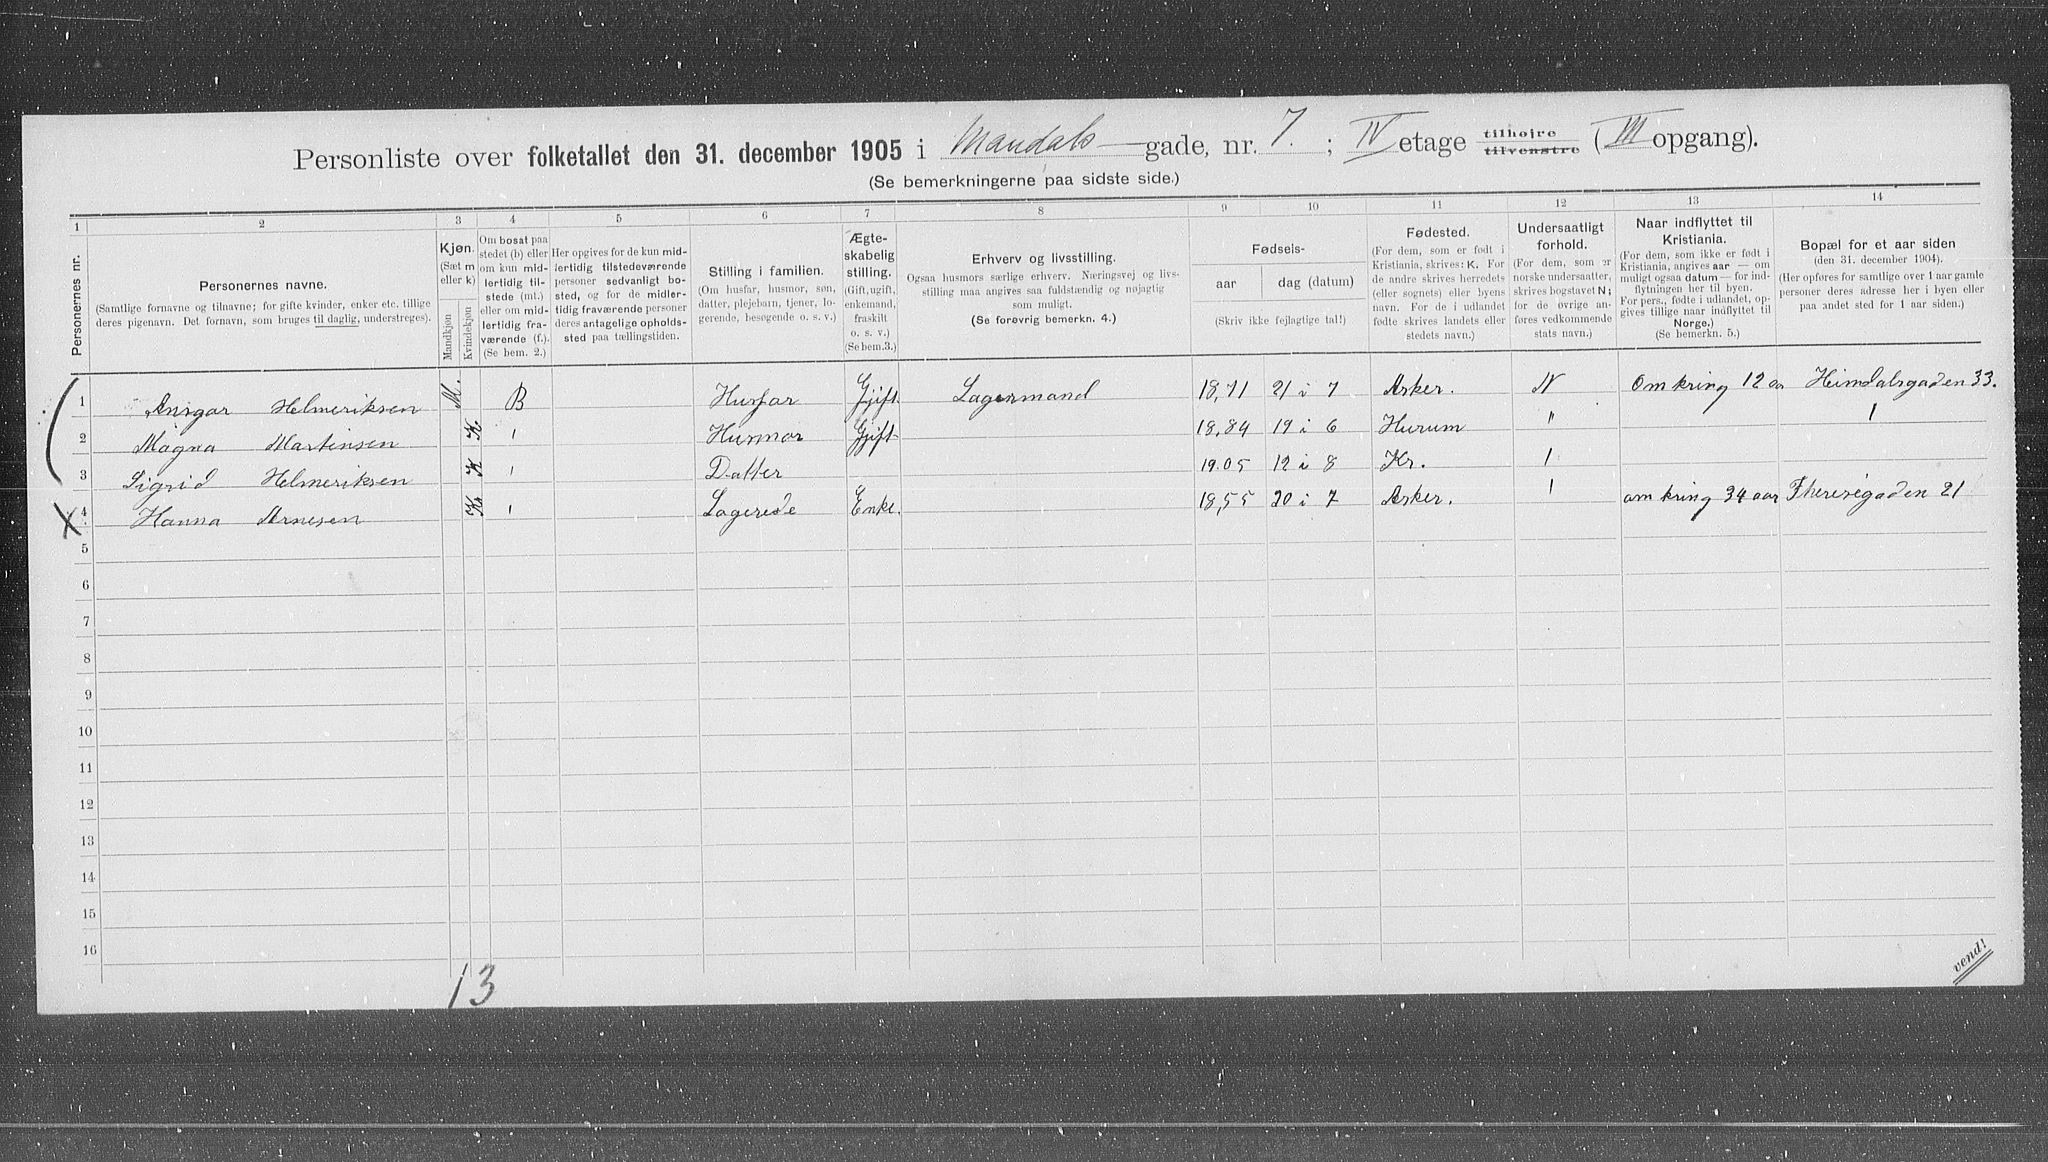 Personliste over folketallet den 31. december 1905 i Mandals gade, nr. 7. ; IV etage tilhøjre tilvenstre ( III opgang).
(Se bemerkningerne paa sidste side.)
1 2 3 4 5 6 7 8 9 10 11 12 13 14
Personernes nr.
Personernes navne.
(Samtlige fornavne og tilnavne; for gifte kvinder, enker etc. tillige
deres pigenavn. Det fornavn, som bruges til daglig, understreges).
Kjøn.
(Sæt m
eller k)
Mandkjøn
Kvindekjøn
Om bosat paa
stedet (b) eller
om kun mid-
lertidig til-
stede (mt.)
eller om mid-
lertidig fra-
værende (f.).
(Se bem. 2.)
Her opgives for de kun mid-
lertidig tilstedeværende
personer sedvanligt bo-
sted, og for de midler-
tidig fraværende personer
deres antagelige opholds-
sted paa tællingstiden.
Stilling i familien.
(Om husfar, husmor, søn,
datter, plejebarn, tjener, lo-
gerende, besøgende o. s. v.)
Ægte-
skabelig
stilling.
(Gift, ugift,
enkemand,
fraskilt
o. s. v.)
(Se bem.3.)
Erhverv og livsstilling.
Ogsaa husmors særlige erhverv. Næringsvej og livs-
stilling maa angives saa fuldstændig og nøjagtig
som muligt.
(Se forøvrig bemerkn. 4.)
Fødsels-
aar
dag (datum)
(Skriv ikke fejlagtige tal!)
Fødested.
(For dem, som er født i
Kristiania, skrives: K. For
de andre skrives herredets
(eller sognets) eller byens
navn. For de i udlandet
fødte skrives landets eller
stedets navn.)
Undersaatligt
forhold.
(For dem, som er
norske undersaatter,
skrives bogstavet N;
for de øvrige an-
føres vedkommende
stats navn.)
Naar indflyttet til
Kristiania.
(For dem, som ikke er født i
Kristiania, angives aar — om
muligt ogsaa datum — for ind-
flytningen her til byen.
For pers., fødte i udlandet, op-
gives tillige naar indflyttet til
Norge.)
(Se bemerkn. 5.)
Bopæl for et aar siden
(den 31. december 1904).
(Her opføres for samtlige over 1 aar gamle
personer deres adresse her i byen eller
paa andet sted for 1 aar siden.)
1 Ansgar Helmeriksen M. B Husfar Gjift Lagermand 18,71 21 i 7 Asker. N Omkring 12 aa Heimdalsgaden 33.
2 Magna Martinsen K. Husmor Gjift 18,84 19 i 6 Hurum "
3 Sigrid Helmeriksen K Datter 1905 12 i 8 Kr.
4 Hanna Arnesen K Logerede Enke. 18,55 20 i 7 Asker. om kring 34 aar Theresegaden 21
5
6
7
8
9
10
11
12
13
14
15
16
13
vend!